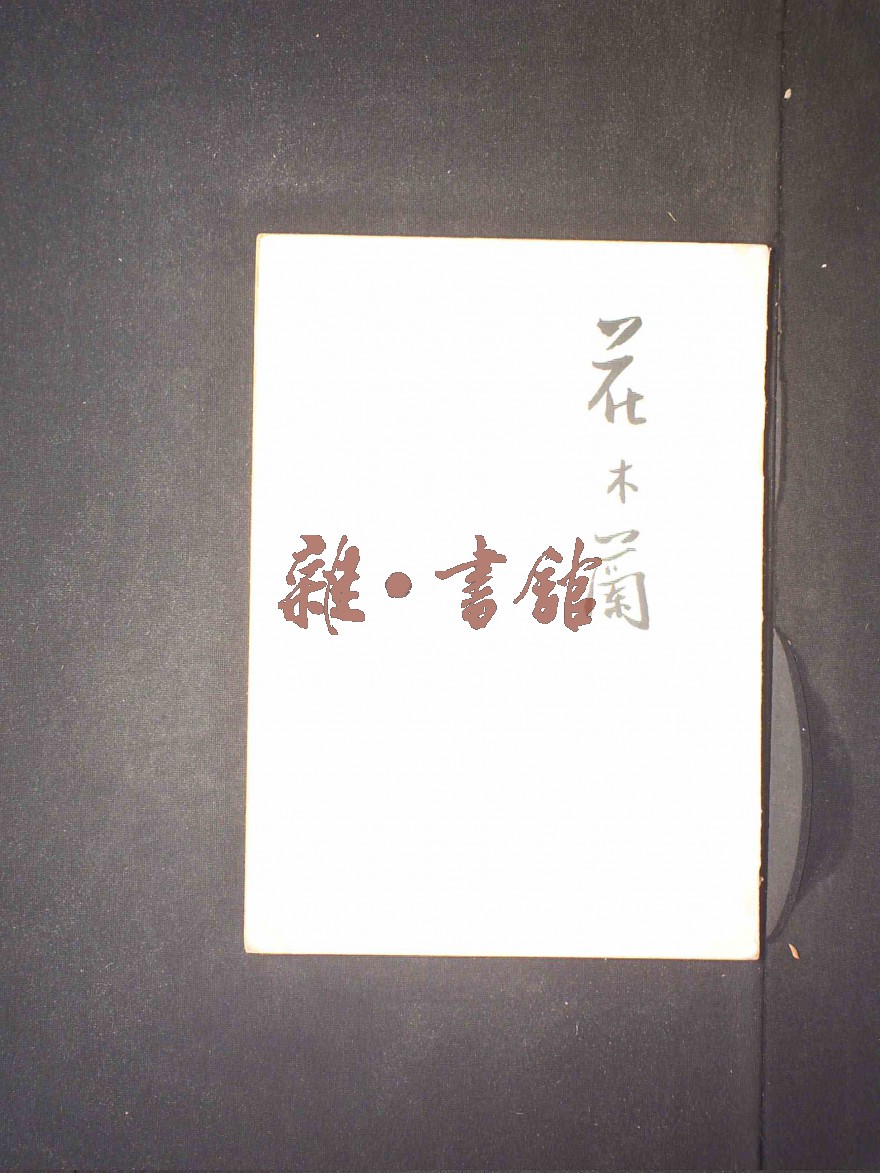 花木蘭
雜·書館